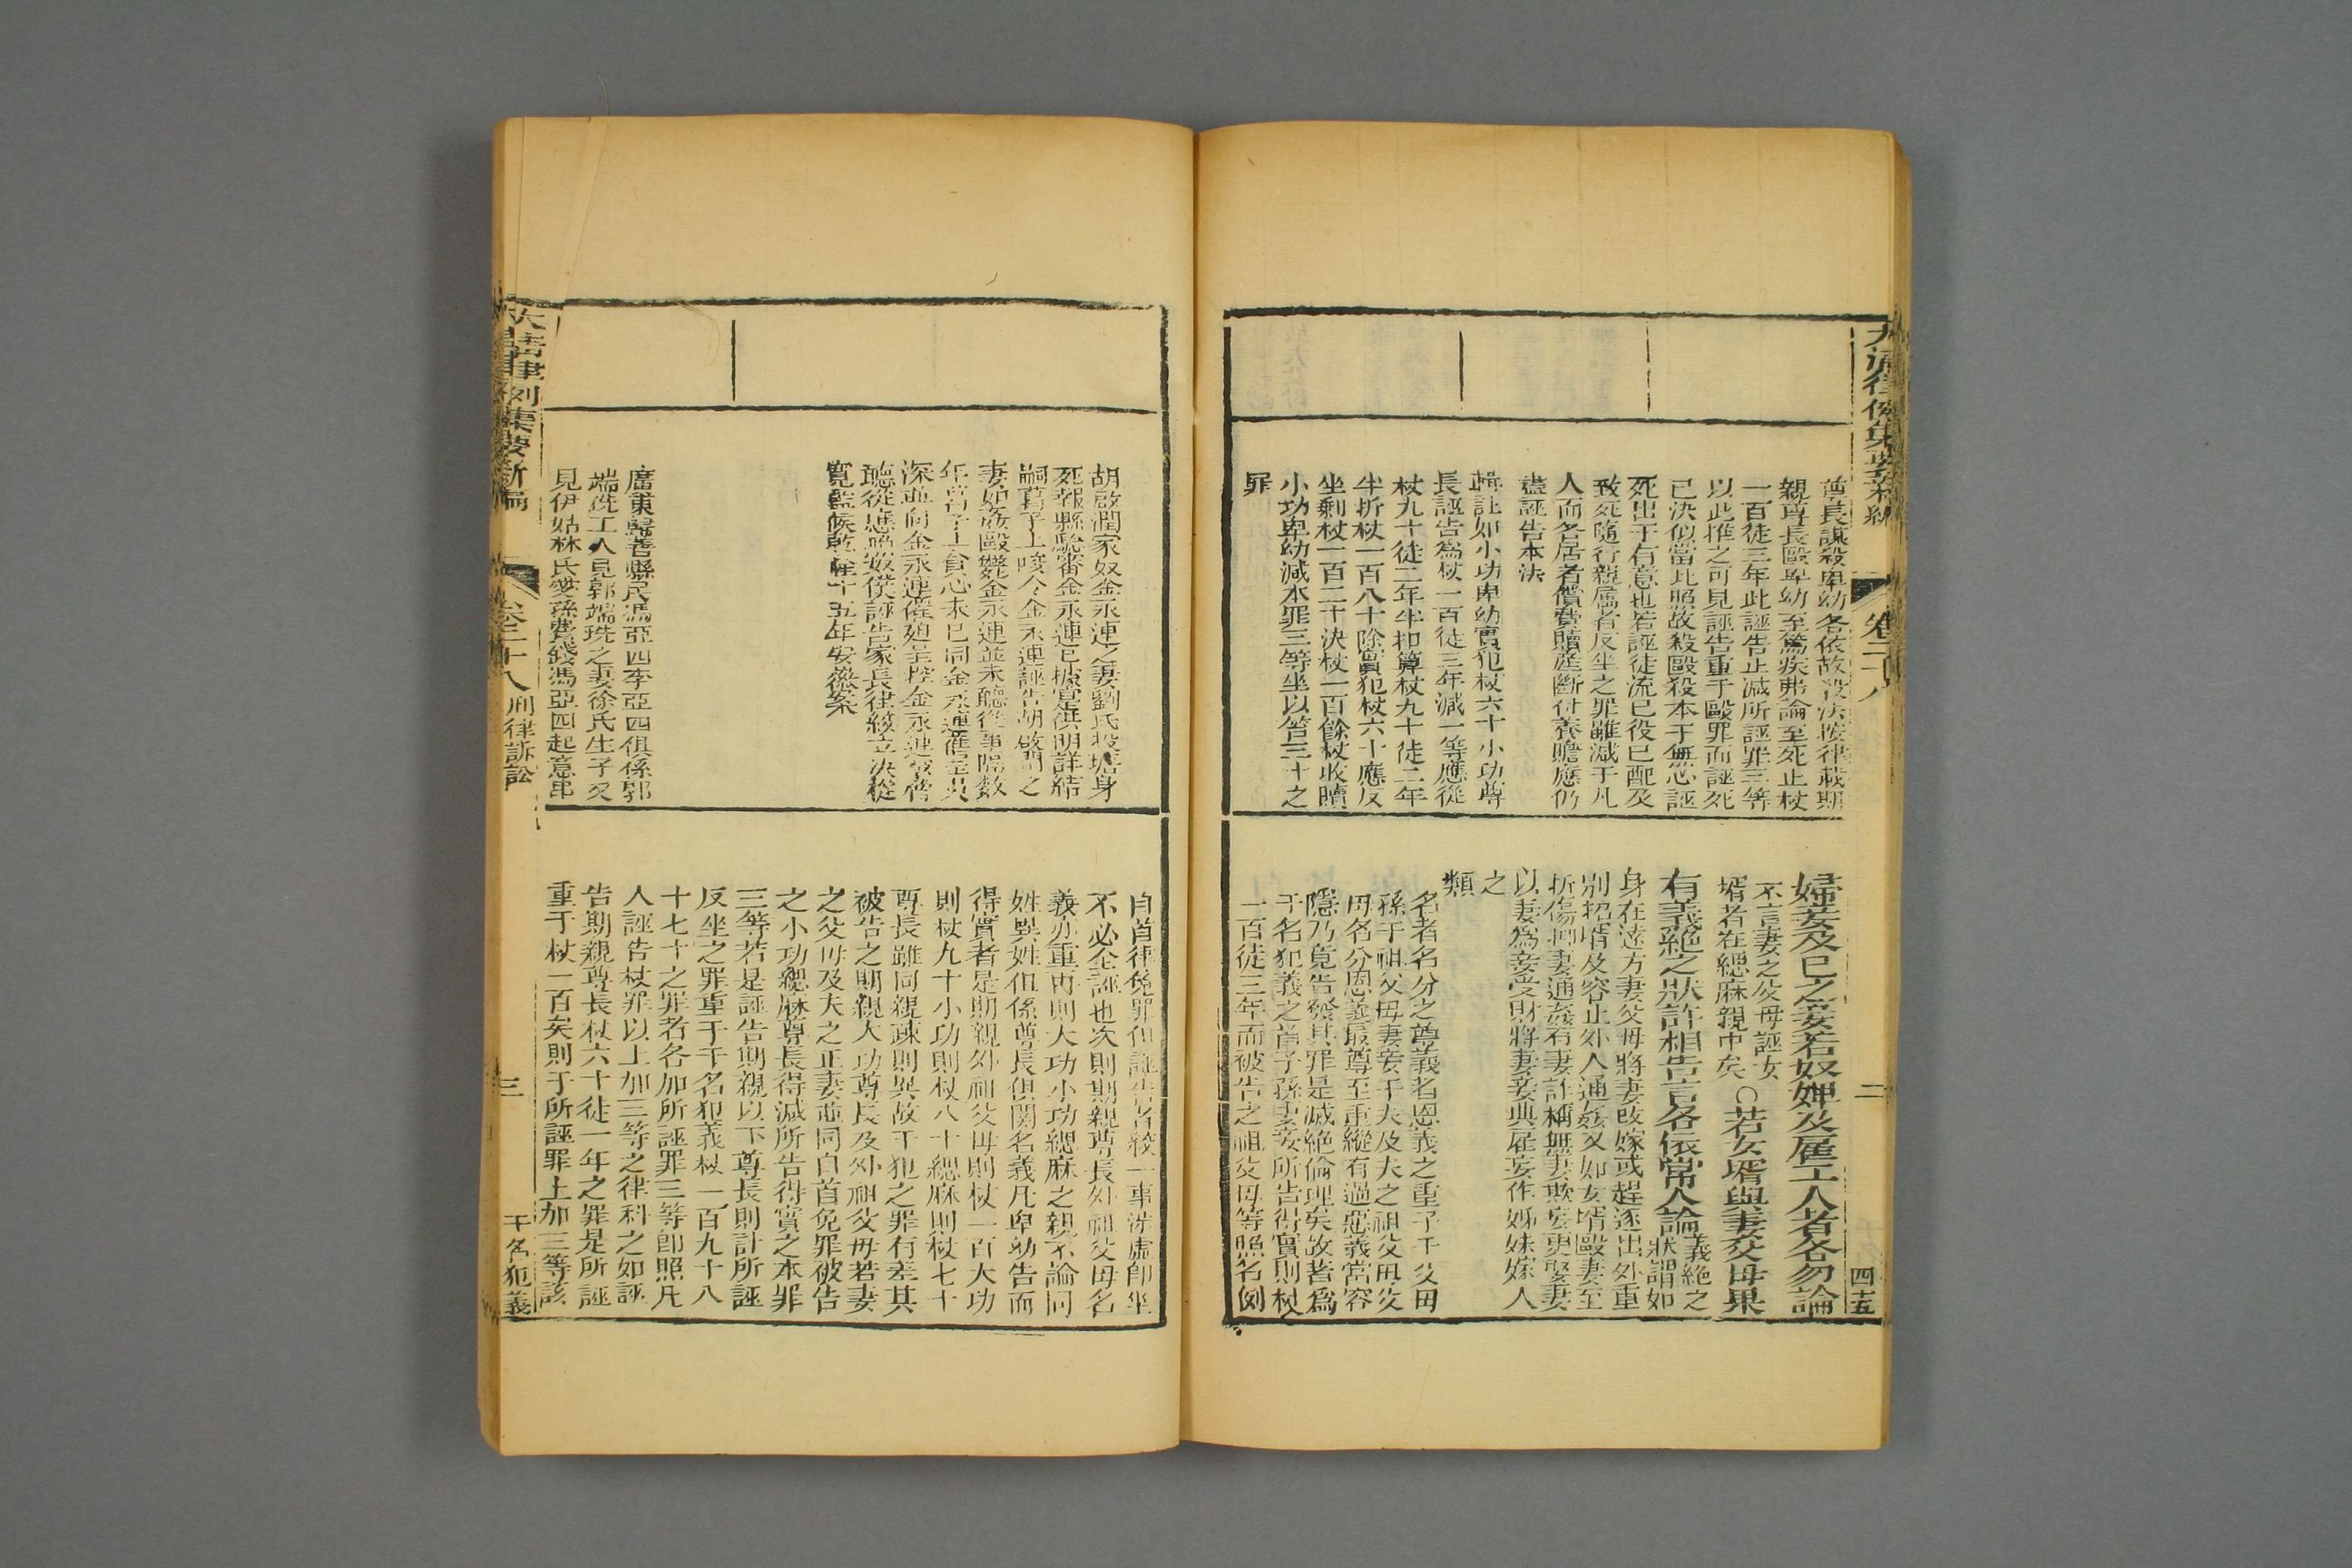 大清律例集要新編
卷二十八
二
四十五
尊長謀殺卑幼各依故殺法按律載期
親尊長毆卑幼至篤疾弗論至死止杖
一百徒三年此誣告止減所誣罪三等
以此推之可見誣告重于毆罪而誣死
已決似當比照故殺毆殺本于無心誣
死出于有意也若誣徒流已役已配及
致死隨行親屬者反坐之罪雖減于凡
人而各居者償費贖產斷付養贍應仍
盡誣告本法
輯註如小功卑幼實犯杖六十小功尊
長誣告為杖一百徒三年減一等應從
杖九十徒二年半扣算杖九十徒二年
半折杖一百八十除實犯杖六十應反
坐剩杖一百二十決杖一百餘杖收贖
小功卑幼減本罪三等坐以笞三十之
罪
婦妾及己之妾若奴婢及雇工人者各勿論
不言妻之父母誣女
壻者在緦麻親中矣
○若女壻與妻父母果
有義絕之狀許相告言各依常人論
義絕之
狀謂如
身在遠方妻父母將妻改嫁或趕逐出外重
別招壻及容止外人通姦又如女壻毆妻至
折傷抑妻通姦有妻詐稱無妻欺妄更娶妻
以妻為妾受財將妻妾典雇妄作姊妹嫁人
之
類
名者名分之尊義者恩義之重子于父母
孫于祖父母妻妾于夫及夫之祖父母父
母名分恩義最尊至重縱有過惡義當容
隱乃竟告發其罪是滅絕倫理矣故著為
干名犯義之首子孫妻妾所告得實則杖
一百徒三年而被告之祖父母等照名例
胡啟潤家奴金永連之妻劉氏投塘身
死報縣驗審金永連已據實供明詳結
嗣葛子上唆令金永連誣告胡啟潤之
妻如姦毆斃金永連並未聽從事隔數
年葛子上貪心未已同金永連催呈具
深並向金永連催廹呈控金永連
聽從應照奴僕誣告家長律綾立決從
寬監候乾隆十五年安徽案
廣東歸善縣民馮亞四李亞四俱係郭
端珖工人見郭端珖之妻徐氏生子又
見伊姑林氏愛孫費錢馮亞四起意串
自首律免罪但誣告者絞一事涉虛即坐
不必全誣也次則期親尊長外祖父母名
義亦重再則大功小功緦麻之親不論同
姓異姓但係尊長俱關名義凡卑幼告而
得實者是期親外祖父母則杖一百大功
則杖九十小功則杖八十緦麻則杖七十
尊長雖同親疎則異故干犯之罪有差其
被告之期親大功尊長及外祖父母若妻
之父母及夫之正妻並同自首免罪被告
之小功緦麻尊長得減所告得實之本罪
三等若是誣告期親以下尊長則計所誣
反坐之罪重于干名犯義杖一百九十八
十七十之罪者各加所誣罪三等即照凡
人誣告杖罪以上加三等之律科之如誣
告期親尊長杖六十徒一年之罪是所誣
重于杖一百矣則于所誣罪上加三等該
大清律例集要新編
卷二十八
刑律訴訟
三
干名犯義